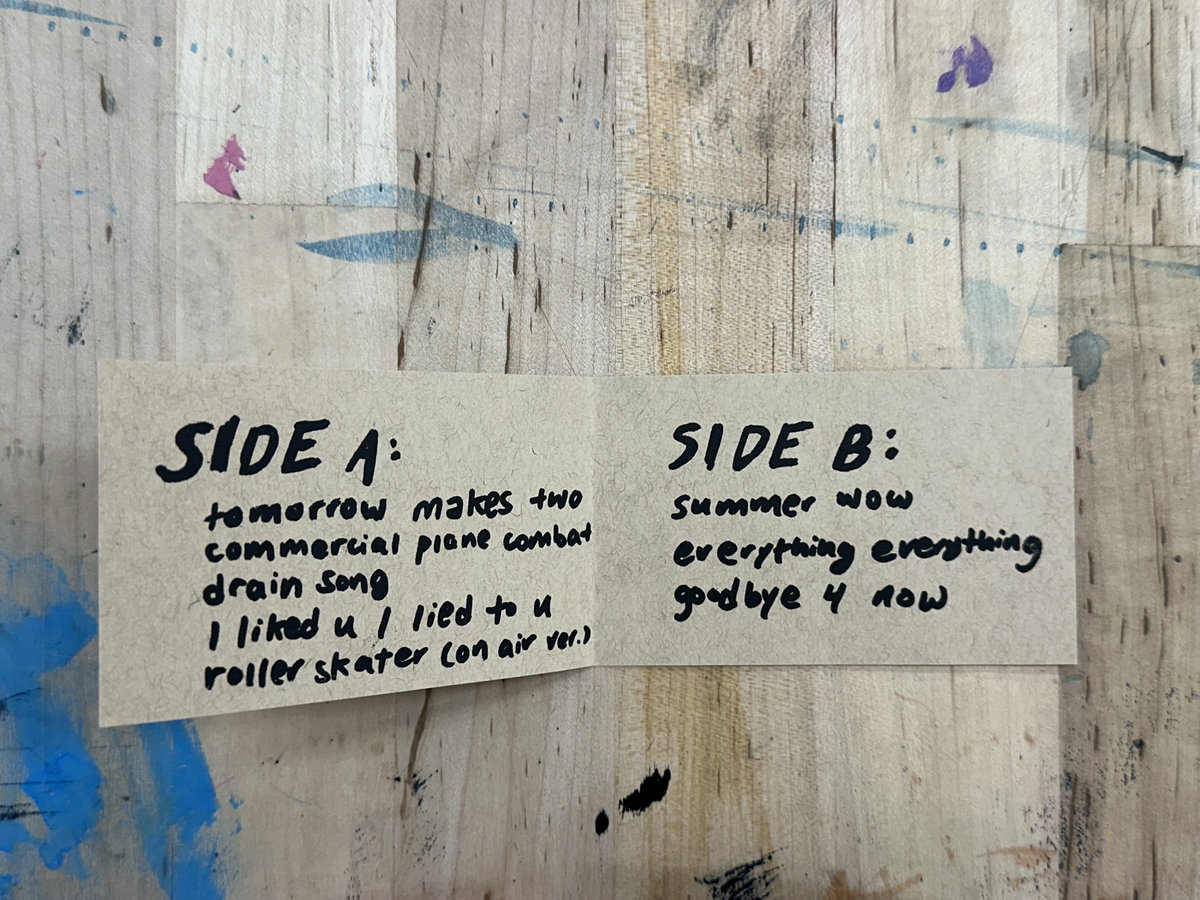 SIDE A:
tomorrow makes two
commercial plane combat
drain song
I liked u I lied to u
roller skater (on air ver.)
SIDE B:
summer wow
everything everything
goodbye 4 now